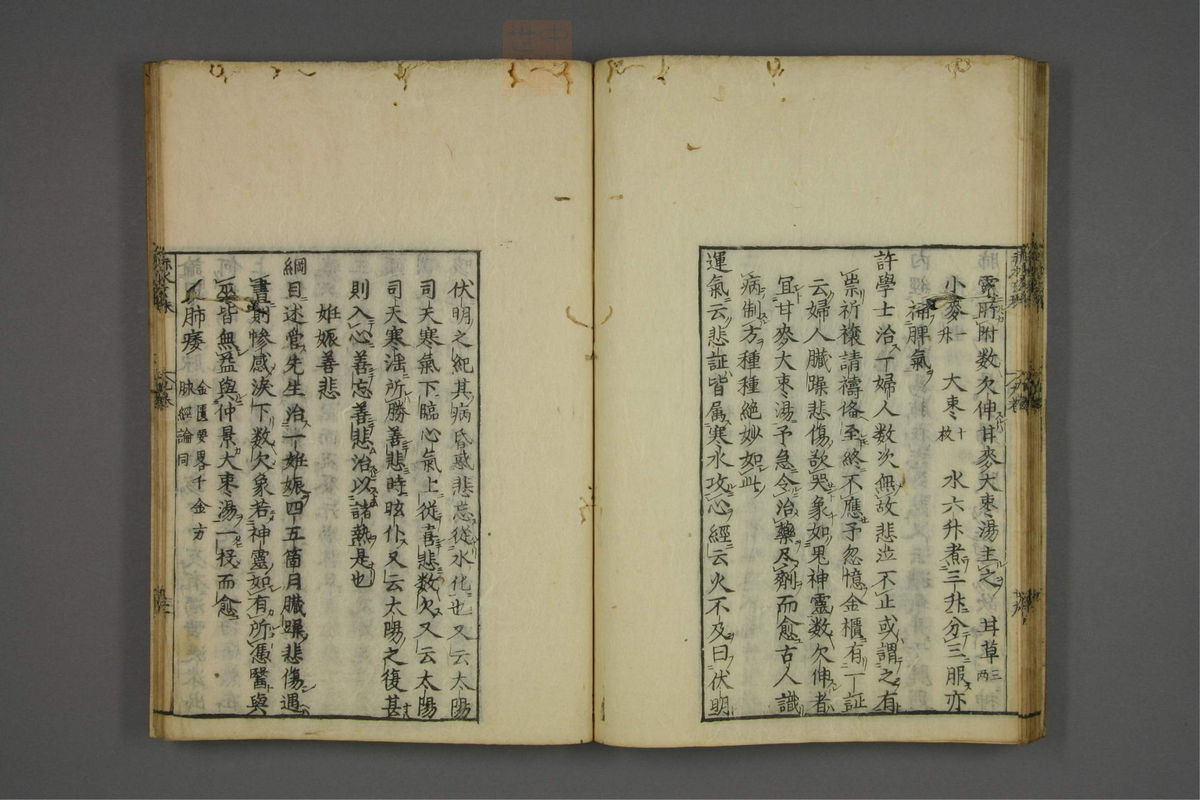 霊所附数欠伸甘麥大枣湯主之 甘草三两
小麥一升 大枣十枚 水六升煮三升分三服亦
補脾氣
許學士治一婦人数次無故悲泣不止或謂之有
祟祈禳請禱俻至終不應予忽憶金櫃有一証
云婦人臓躁悲傷欲哭象如鬼神靈数欠伸者
宜甘麥大枣湯予急令治藥尽劑而愈古人識
病制方種種絶妙如此
運氣云悲証皆属寒水攻心經云火不及曰伏明
伏明之紀其病昏惑悲忘從水化也又云太陽
司天寒氣下臨心氣上從善悲数欠又云太陽
司天寒淫所勝善悲時眩仆又云太陽之復甚
則入心善忘善悲治以諸熱是也
姙娠善悲
綱目述官先生治一姙娠四五箇月臓躁悲傷遇
晝則惨感淚下数欠象若神靈如有所憑醫與
巫皆無益與仲景大枣湯一投而愈
肺痿 金匱要畧千金方
脉經論同